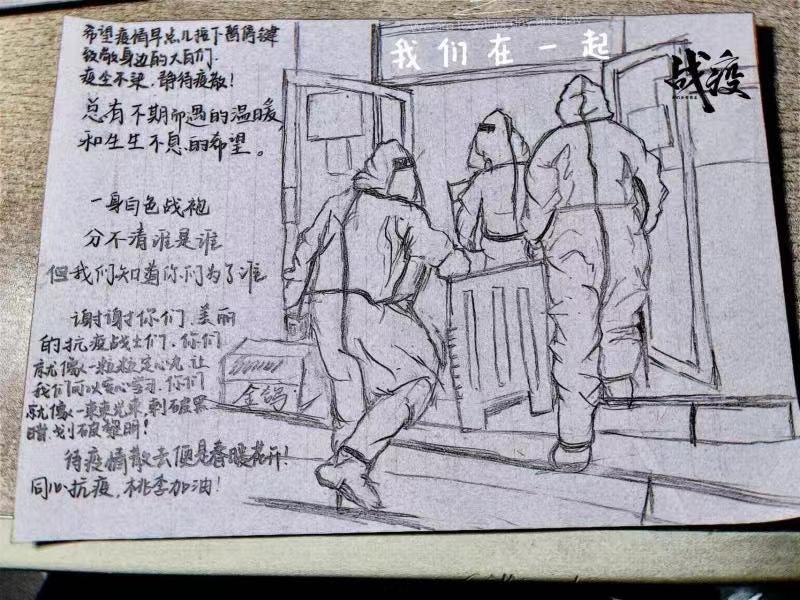 我们在一起
战疫
希望疫情早点儿按下暂停键
致敬身边的大白们.
疫尘不染，静待疫散！
总有不期而遇的温暖，
和生生不息的希望。
一身白色战袍
分不清谁是谁
但我们知道你们为了谁
谢谢你们，美丽
的抗疫战士们，你们
就像一粒粒定心丸，让
我们可以安心学习，你们
就像一束束光束，刺破黑
暗，划破黎明！
待疫情散去便是春暖花开！
同心抗疫，桃李加油！
金锣